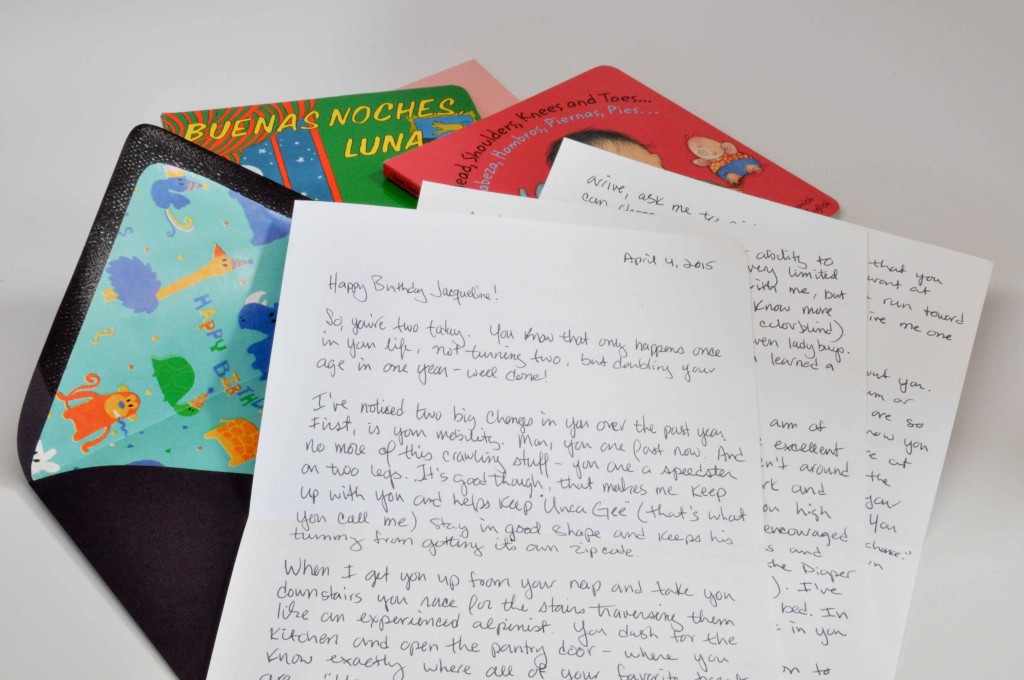 BUENAS NOCHES,
LUNA
Head, Shoulders, Knees and Toes...
Cabeza, Hombros, Piernas, Pies...
HAPPY
BIRTHD
April 4, 2015
Happy Birthday Jacqueline!
So, you're two today. You know that only happens once
in your life, not turning two, but doubling your
age in one year - well done!
I've noticed two big changes in you over the past year.
First, is your mobility. Man, you are fast now. And
no more of this crawling stuff - you are a speedster
on two legs. It's good though, that makes me keep
up with you and helps keep "Unca Gee" (that's what
you call me) stay in good shape and keeps his
tummy from getting its own zip code.
When I get you up from your nap and take you
downstairs you race for the stairs traversing them
like an experienced alpinist. You dash for the
kitchen and open the pantry door - where you
know exactly where all of your favorite
are
arrive, ask me to
can
ability to
very limited
with me, but
know more
colorblind)
even ladybugs.
learned a
arm of
excellent
n't around
rk and
on high
encouraged
s and
the Diaper
). I've
bed. In
in you
m to
that you
want at
run toward
give me one
out you.
um or
ore so
now you
e at
the
your
You
chance."
in